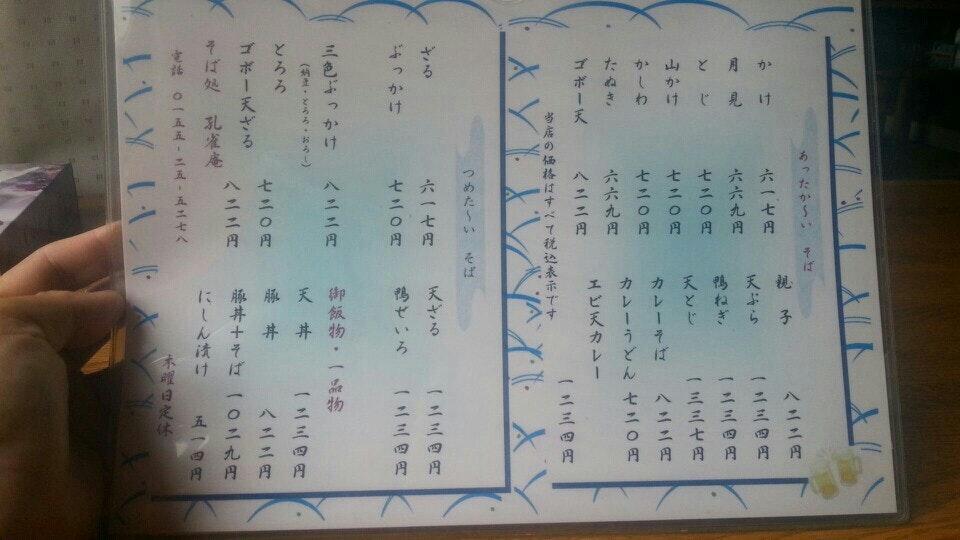 あったか〜い そば
かけ 六一七円
月見 六六九円
とじ 七二〇円
山かけ 七二〇円
かしわ 七二〇円
たぬき 六六九円
ゴボー天 八二二円
親子 八二二円
天ぷら 一二三四円
鴨ねぎ 一二三四円
天とじ 一三三七円
カレーそば 八二二円
カレーうどん 七二〇円
エビ天カレー 一二三四円
当店の価格はすべて税込表示です
つめた〜い そば
ざる 六一七円
ぶっかけ 七二〇円
三色ぶっかけ 八二二円
(納豆・とろろ・おろし)
とろろ 七二〇円
ゴボー天ざる 八二二円
天ざる 一二三四円
鴨せいろ 一二三四円
御飯物・一品物
天丼 一二三四円
豚丼 八二二円
豚丼+そば 一〇二九円
にしん漬け 五一四円
そば処 孔雀庵
電話 〇一五五-二五-五二七八
木曜日定休